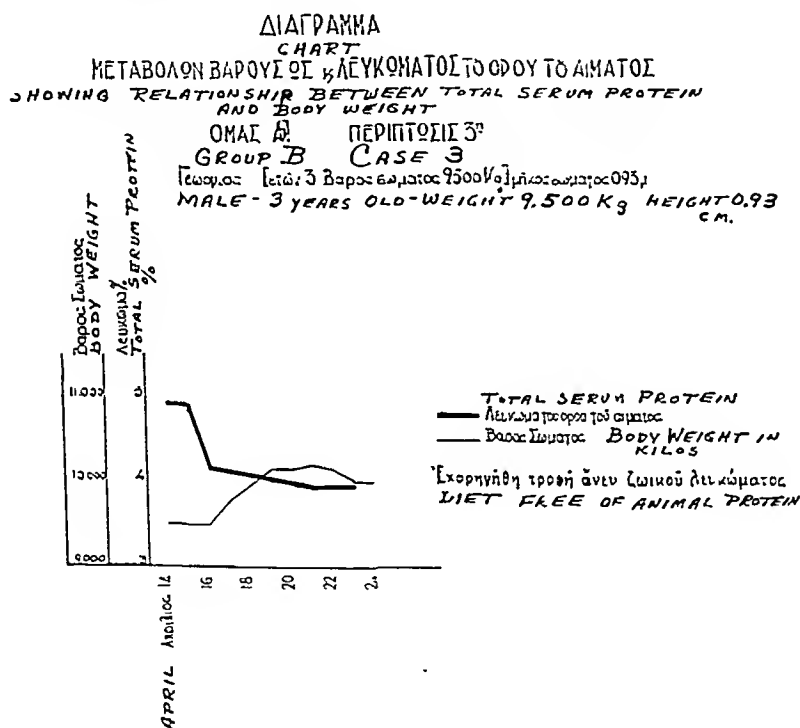 ΔΙΑΓΡΑΜΜΑ
CHART
ΜΕΤΑΒΟΛΩΝ ΒΑΡΟΥΣ ΩΣ ϗ ΛΕΥΚΩΜΑΤΟΣ ΤΟ ΟΡΟΥ ΤΟ ΑΙΜΑΤΟΣ
SHOWING RELATIONSHIP BETWEEN TOTAL SERUM PROTEIN
AND BODY WEIGHT
ΟΜΑΣ ΠΕΡΙΠΤΩΣΙΣ 3η
GROUP B CASE 3
Γεώργιος [ετών 3 Βαρος σωματος 9500 Kg] μήκος σωματος 093μ
MALE - 3 YEARS OLD - WEIGHT 9.500 Kg HEIGHT 0.93
CM.
Βαρος Σωματος
BODY WEIGHT
Λευκωμα %
TOTAL SERUM PROTEIN
%
11.000 5
10.000 4
9.000
TOTAL SERUM PROTEIN
Λευκωματος ορου του αιματος
Βαρος Σωματος BODY WEIGHT IN
KILOS
Ἐχορηγήθη τροφή ἄνευ ζωικοῦ λευκώματος
DIET FREE OF ANIMAL PROTEIN
APRIL Απριλιος 14 16 18 20 22